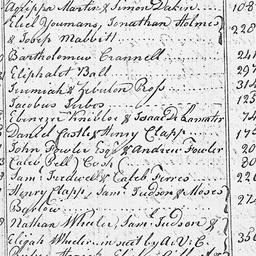 Agrippa Martin & Simon Dakin 108
Eliel Youmans, Jonathan Holmes
& Tobijs Mabbitt 228
Bartholomew Crannell 24
Eliphalet Ball 29
Jeremiah & Zebulon Ross 314
Jacobus Terbos 125
Ebenezer Knibloe & Isaac Delamater 74
Daniel Castle & Henry Clapp 17
John Fowler Esqr & Andrew Fowler 20
Caleb Pell Cost 80
Saml Ferdwell & Caleb Ferres 220
Henry Clapp, Saml Judson & Moses
Barlow 27
Nathan Wheeler, Saml Judson &
Elijah Wheeler in suit by A. V. C. 350